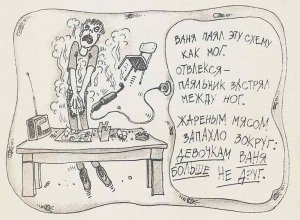 ВАНЯ ПАЯЛ ЭТУ СХЕМУ
КАК МОГ.
ОТВЛЕКСЯ –
ПАЯЛЬНИК ЗАСТРЯЛ
МЕЖДУ НОГ.
ЖАРЕНЫМ МЯСОМ
ЗАПАХЛО ВОКРУГ:
ДЕВОЧКАМ ВАНЯ
БОЛЬШЕ НЕ ДРУГ.